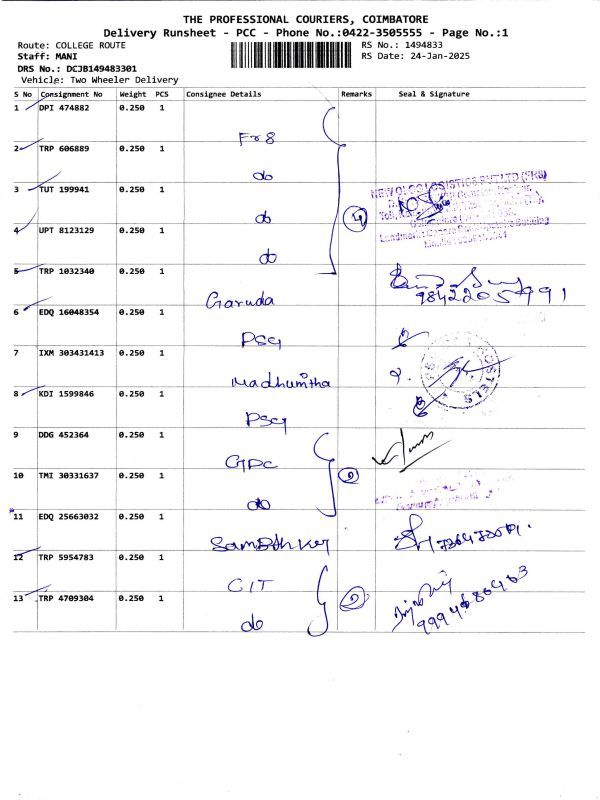 THE PROFESSIONAL COURIERS, COIMBATORE
Delivery Runsheet - PCC - Phone No.:0422-3505555 - Page No.:1
Route: COLLEGE ROUTE RS No.: 1494833
Staff: MANI RS Date: 24-Jan-2025
DRS No.: DCJB149483301
Vehicle: Two Wheeler Delivery
S No Consignment No Weight PCS Consignee Details Remarks Seal & Signature
1 DPI 474882 0.250 1
Fr8
2 TRP 606889 0.250 1
do
3 TUT 199941 0.250 1
do 4
4 UPT 8123129 0.250 1
do
5 TRP 1032340 0.250 1
Garuda 9842205991
6 EDQ 16048354 0.250 1
PSG
7 IXM 303431413 0.250 1
Madhumitha
8 KDI 1599846 0.250 1
PSG
9 DDG 452364 0.250 1
GPC
10 TMI 30331637 0.250 1
do 2
*11 EDQ 25663032 0.250 1
12 TRP 5954783 0.250 1
CIT
13 TRP 4709304 0.250 1 2
do 9994686463